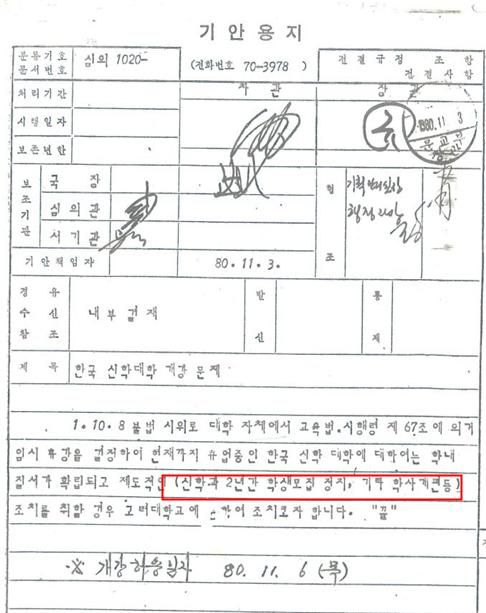 기안용지
분류기호 문서번호 심의 1020- (전화번호 70-3978) 전결규정 조 항 전결사항
처리기간 차관 장관
시행일자
보존년한
1980.11. 3
문교부
보조기관 국장 협조 기획관리실장
심의관 행정
서기관
기안책임자 80.11.3.
경유 수신 참조 내부결재 발신 통제
제목 한국 신학대학 개강 문제
1. 10.8 불법 시위로 대학 자체에서 교육법.시행령 제 67조에 의거
임시 휴강을 결정하여 현재까지 휴업중인 한국 신학 대학에 대하여는 학내
질서가 확립되고 제도적인 (신학과 2년간 학생모집 정지, 기타 학사개편등)
조치를 취할 경우 조치코자 합니다. "끝"
※ 개강허용일자 80. 11. 6 (목)